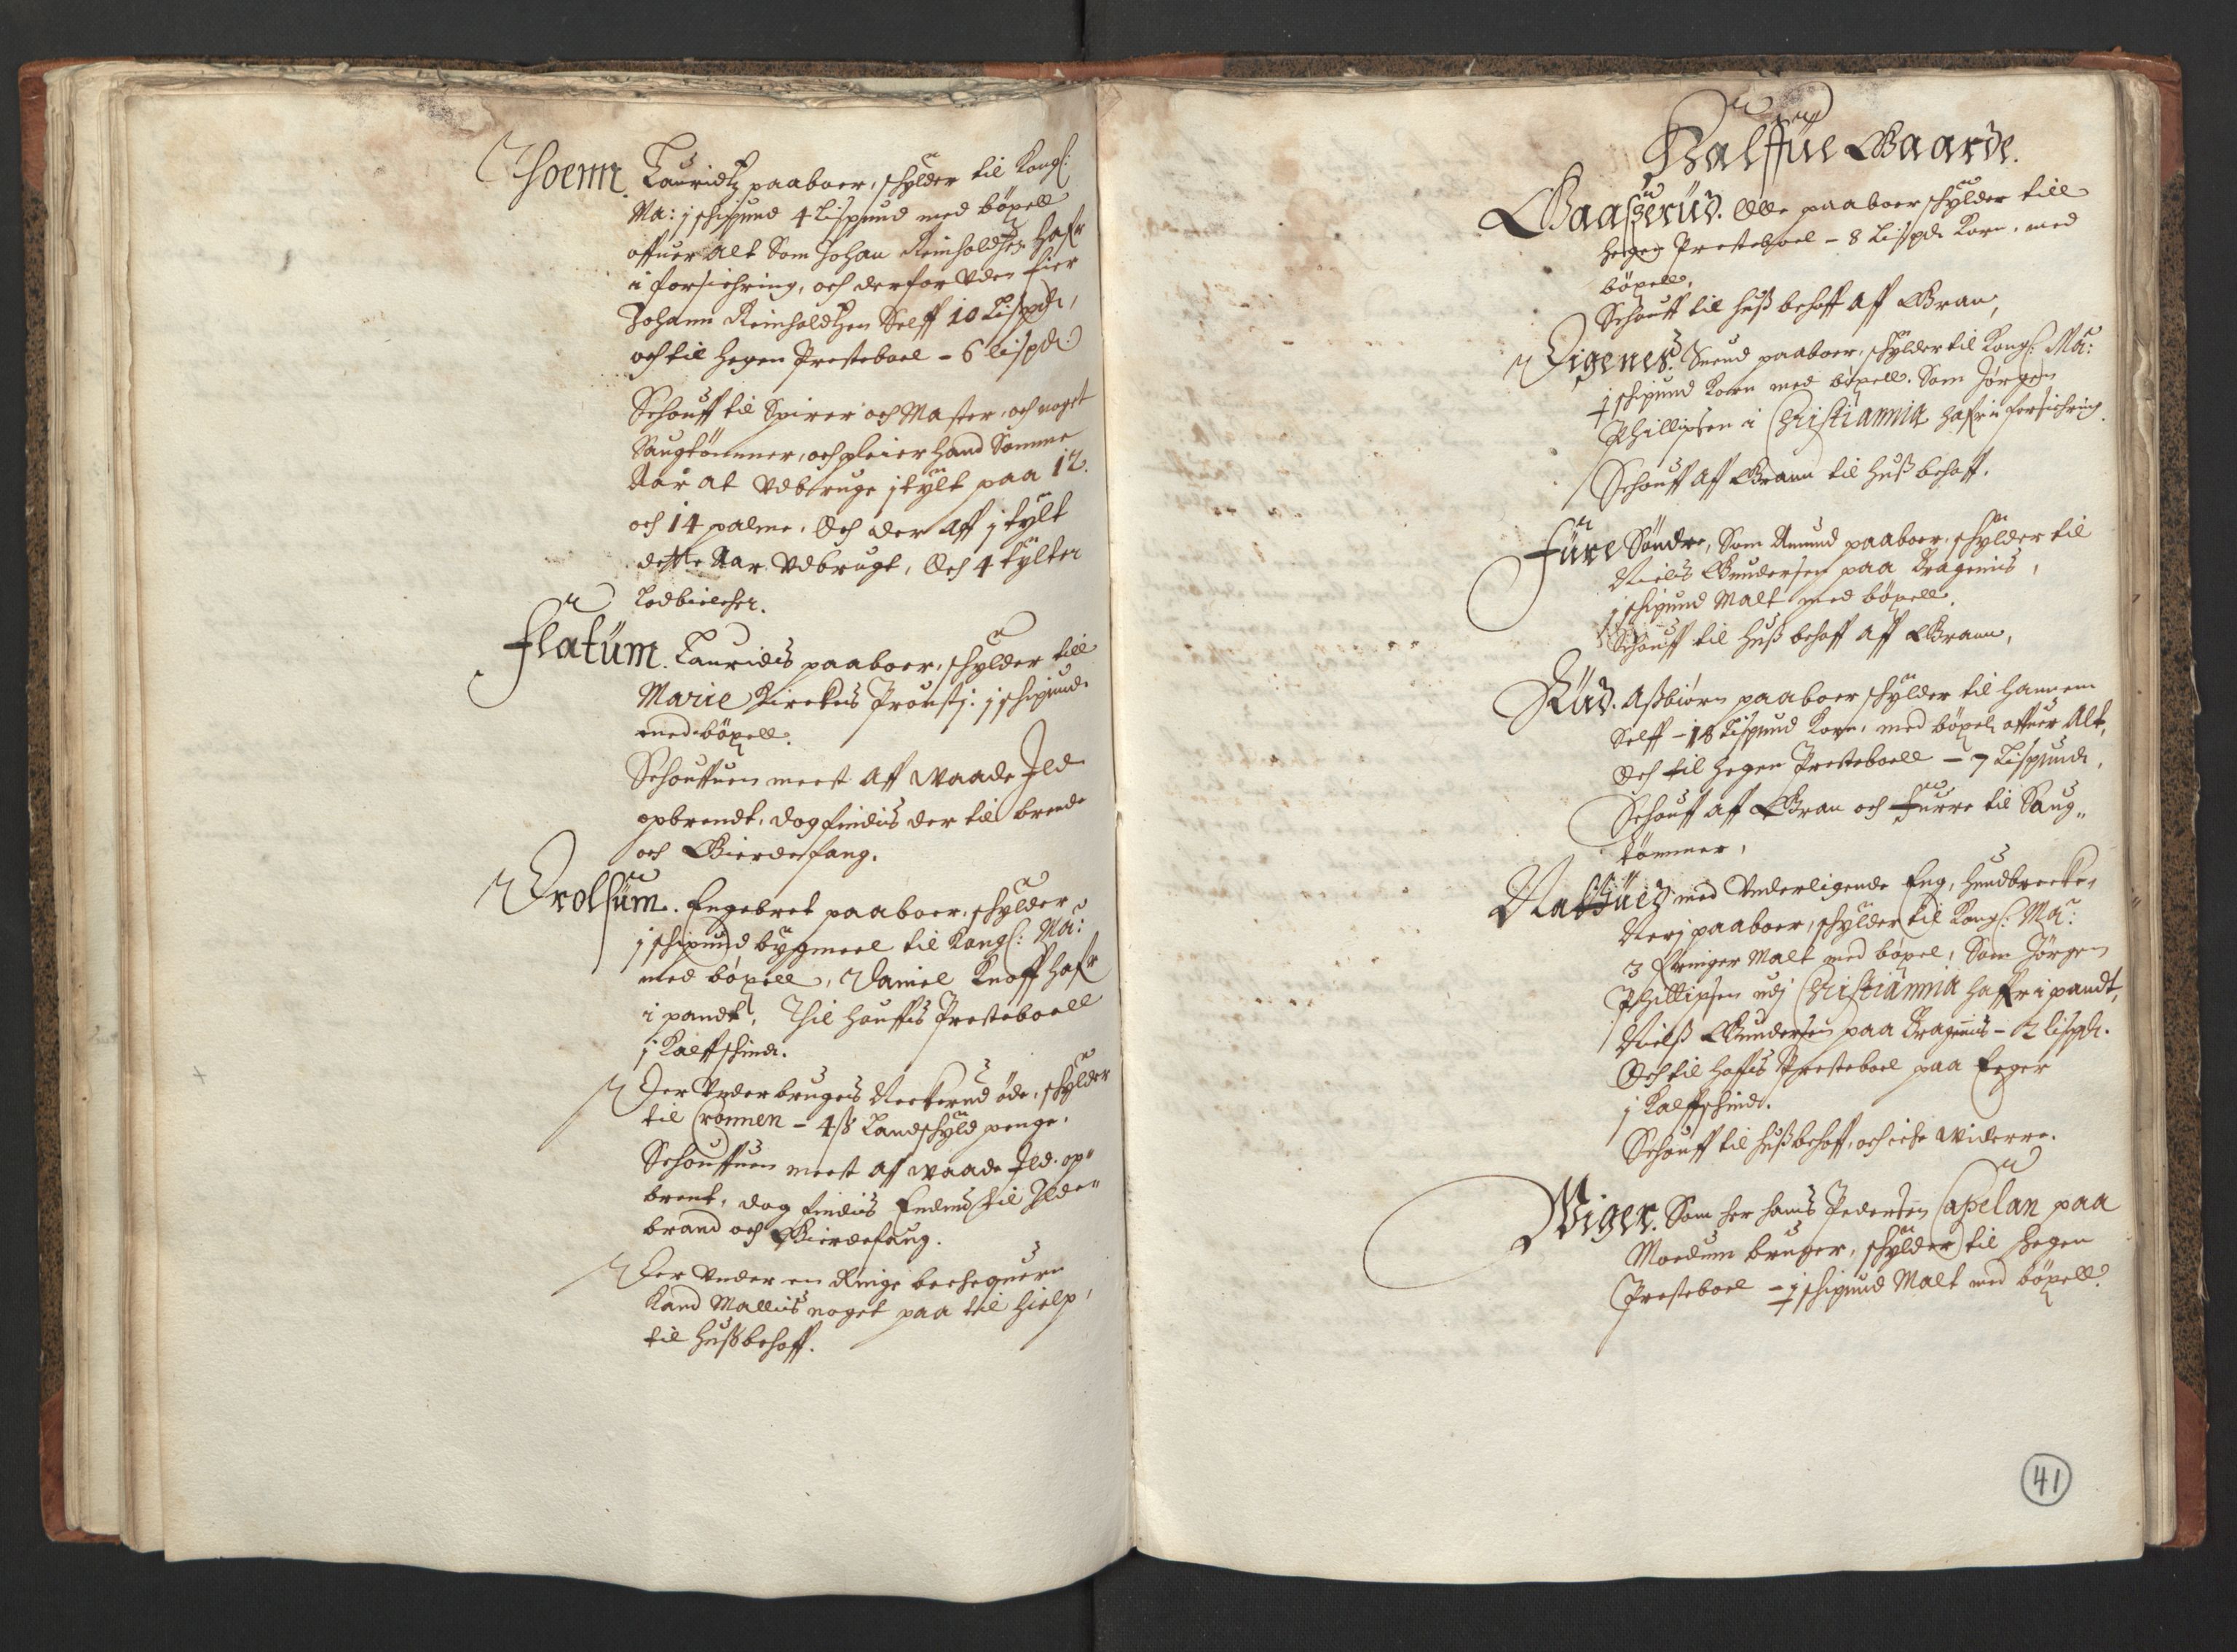 Thoenn. Lauridtz paaboer, schylder til Kongl:
Ma: j schippund 4 Lispund med böxell
offuer alt Som Johan Reinholdtzen hafr
i forsichring, och derfor Vden hier
Johann Reinholdtzen Selff 10 Lispd,
och til Hegen Presteboel - 6 lispd.
Schouff til Spirer och Master, och noget
Saugtömmer, och pleier hand Somme
Aar at Vdbruge j tylt paa 12.
och 14 palme. Och der aff j tylt
dette Aar Vdbrugt, Och 4 tylter
Lodbielcher.
Flatüm. Lauridts paaboer, schylder till
Marie Kirckes Proustj: j schipund
med böxell.
Schouffuen meest aff waade Jld
opbrendt, dog findis der til brende
och Gierdesfang.
Drolsüm. Engebret paaboer, schylder
j schipund bygmeel til Kongl: Ma:
med böxell, Daniel Knoff hafr
i pandt, Thil Houffs Presteboell
j Kalffschind.
Der Vnderbruges Neckerud öde, schylder
til Cronnen - 4 ß Landschyld penge.
Schouffuen meest aff waade Jld. op-
brent, dog findis Endnu til Jlde-
brand och Gierdesfang.
Der Vnder en Ringe becheqvern
Kand Mallis noget paa til hielp,
til hußbehoff.
Halffüe Gaarde.
Gaaßerüd. Olle paaboer schylder till
Hegen Presteboel - 8 Lispd. Korn, med
böxell.
Schouff til huß behoff aff Gran,
Vigenes. Suend paaboer, schylder til Kongl: Ma:
j schipund Korn med böxell. Som Jörgen
Phillipsen i Christiannia hafr i forsichring.
Schouff aff Grann til huß behoff.
Füre Söndre, Som Amund paaboer, schylder til
Nielß Gundersen paa Bragenis,
j schipund Malt med böxell.
Schouff til huß behoff aff Grann,
Rüd. Aßbiörn paaboer schylder til hannem
Selff - 18 Lispund Korn, med böxel offuer Alt,
Och til Hegen Presteboell - 7 Lispund,
Schouff aff Gran och Furre til Saug-
tömmer,
med Vnderligende Eng, Hundbrecke,
paaboer, schylder til Kongl: Ma:
3 fringer Malt med böxel, Som Jörgen
Phillipsen udj Christiannia haffr i pandt,
Nielß Gundersen paa Bragenis - 2 lispd.
Och til Hoffs Presteboel paa Eeger
j Kalffschind.
Schouff til hußbehoff, och iche widerre.
Wiger. Som her Hans Pedersen Capelan paa
Moedum bruger, schylder til Hegen
Presteboel - j schipund Malt med böxell.
41